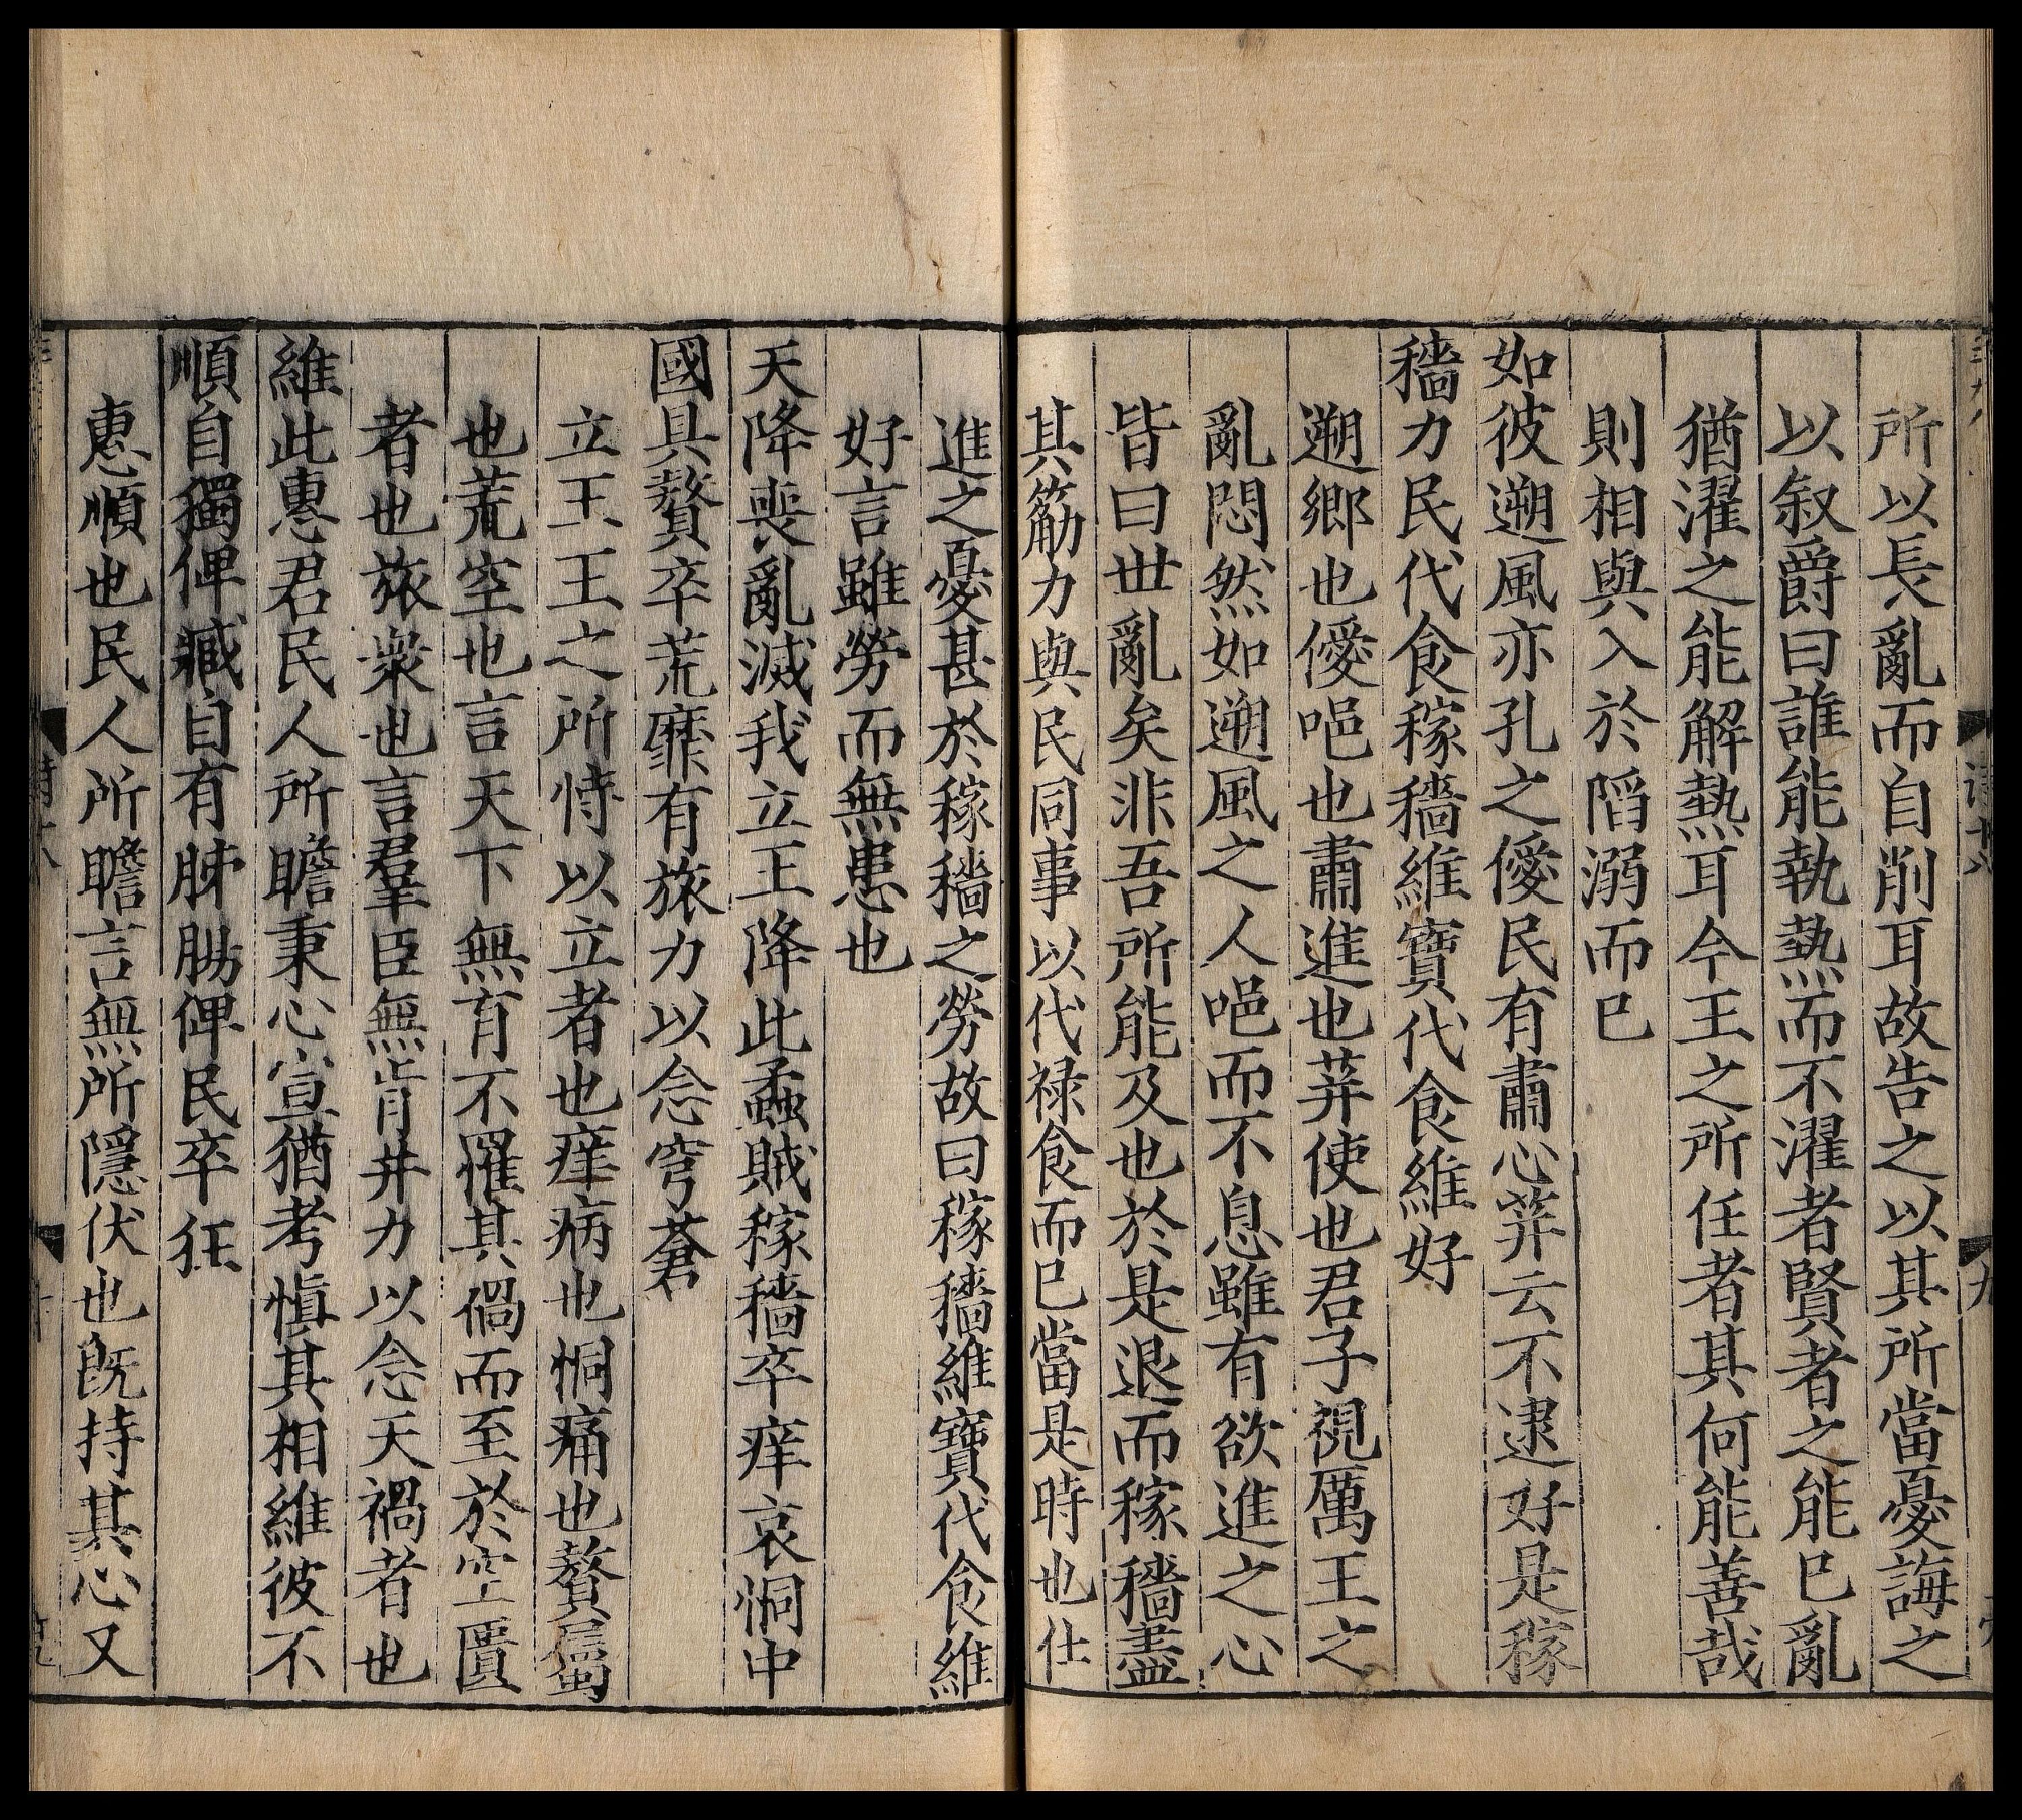 所以長亂而自削耳故告之以其所當憂誨之
以叙爵曰誰能執熱而不濯者賢者之能已亂
猶濯之能解熱耳今王之所任者其何能善哉
則相與入於陷溺而已
如彼遡風亦孔之僾民有肅心荓云不逮好是稼
穡力民代食稼穡維寶代食維好
遡鄉也僾唈也肅進也荓使也君子視厲王之
亂悶然如遡風之人唈而不息雖有欲進之心
皆曰世亂矣非吾所能及也於是退而稼穡盡
其筋力與民同事以代祿食而已當是時也仕
進之憂甚於稼穡之勞故曰稼穡維寶代食維
好言雖勞而無患也
天降喪亂滅我立王降此蟊賊稼穡卒痒哀恫中
國具贅卒荒靡有旅力以念穹蒼
立王王之所恃以立者也痒病也恫痛也贅屬
也荒空也言天下無有不罹其禍而至於空匱
者也旅衆也言羣臣無肯并力以念天禍者也
維此惠君民人所瞻秉心宣猶考慎其相維彼不
順自獨俾臧自有肺腸俾民卒狂
惠順也民人所瞻言無所隱伏也旣持其心又